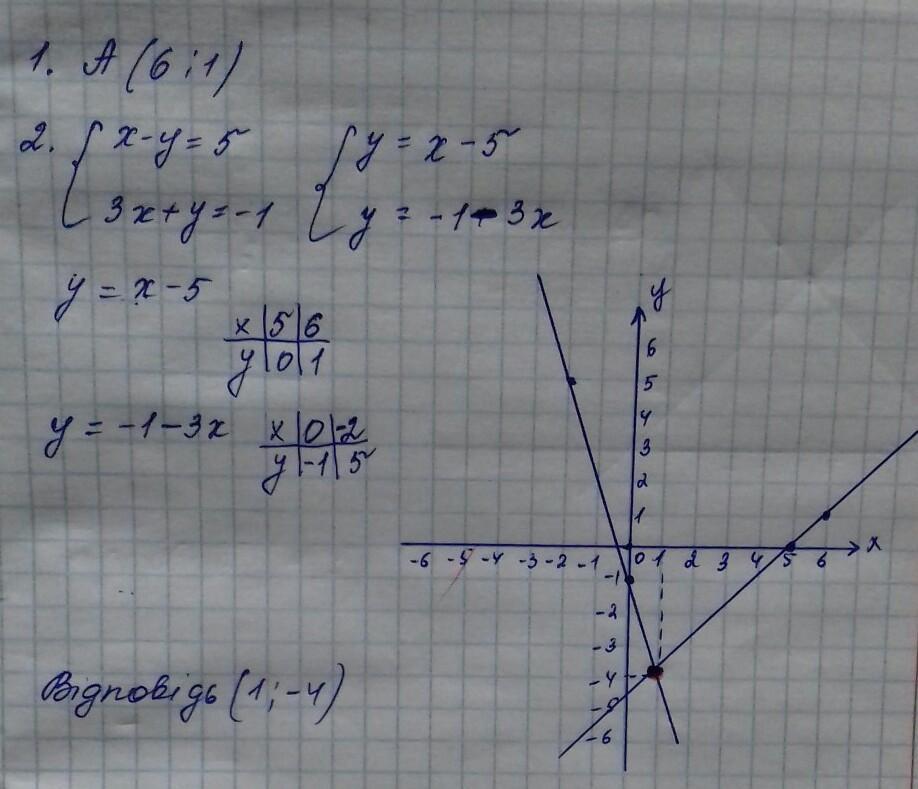 1. A (6 ; 1)
2. { x - y = 5 { y = x - 5
3x + y = -1 y = -1 - 3x
y = x - 5
x | 5 | 6
y | 0 | 1
y = -1 - 3x
x | 0 | -2
y | -1 | 5
y
6
5
4
3
2
1
-6 -5 -4 -3 -2 -1 0 1 2 3 4 5 6 x
-1
-2
-3
-4
-5
-6
Відповідь (1; -4)